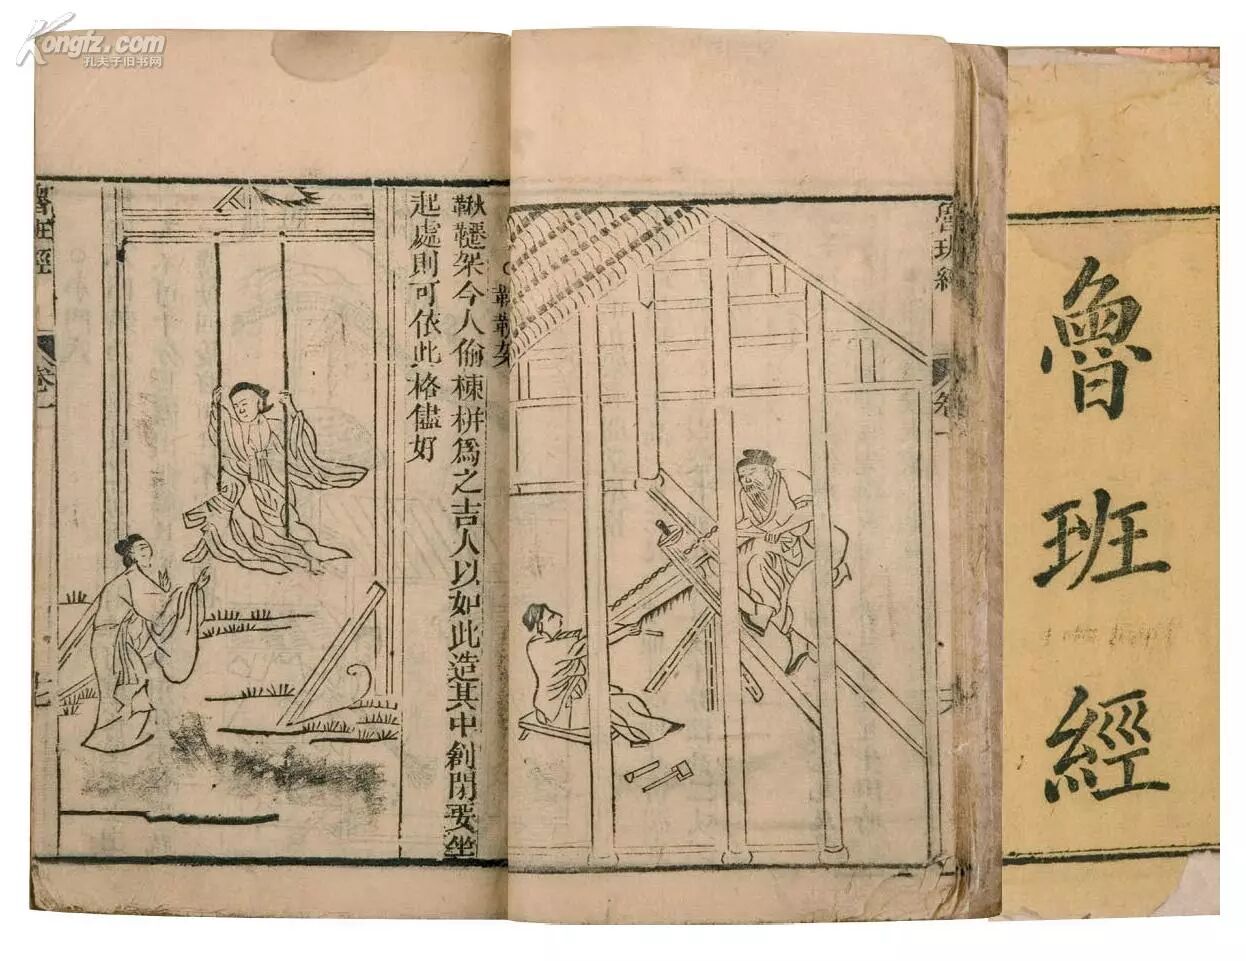 Kongfz.com
孔夫子旧书网
魯班經
魯班經 卷一
鞦韆架
鞦韆架今人偷棟栟爲之吉人以如此造其中創閑要坐
起處則可依此格儘好
魯班經 卷一